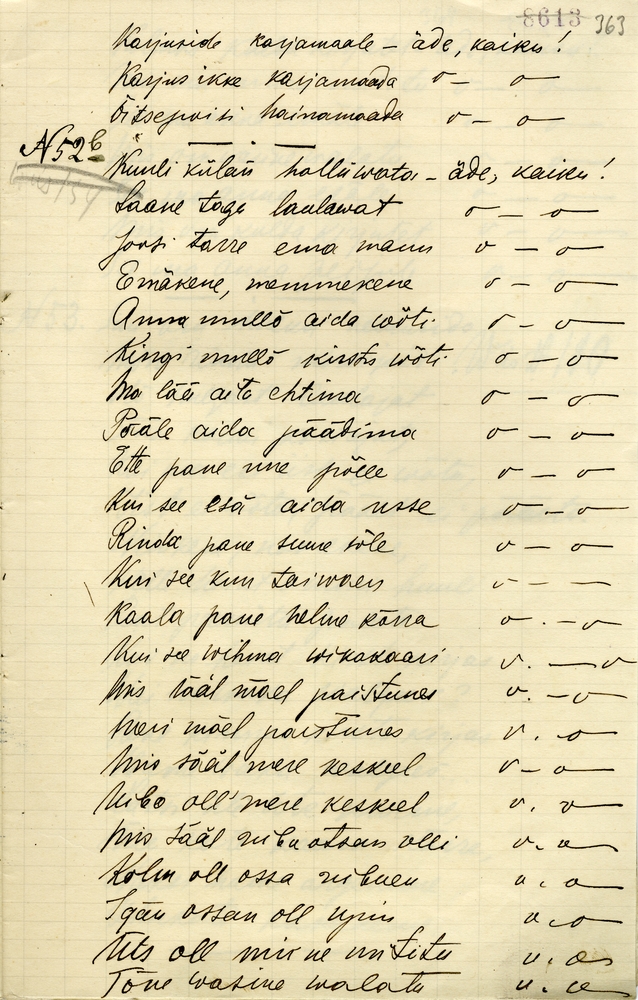 8613 363
Karjuside karjamaale – äde, kaiku!
Karjus ikke karjamaada
Õitsepoisi hainamaada
N52b
Kuuli külän hollüwata – äde, kaiku!
Saane taga laulawat
Joosi tarre ema mann
Emäkene, memmekene
Anna mullõ aida wõti
Kingi mullõ kirstu wõti
Ma lää aita ehtima
Pääle aida päädima
Ette pane une põlle
Kui see esä aida usse
Rinda pane suure sõle
Kui see kuu taiwaen
Kaala pane helme kõrra
Kui see wihma wikakaari
Mis sääl mäel paistunes
Meri mäel paistunes
Mis sääl mere keskeel
Uibo oll' mere keskeel
Mis sääl uibu otsan olli
Kolm oll ossa uibuen
Igän ossan oll upin
Üts oll
Tõne wasine walatu